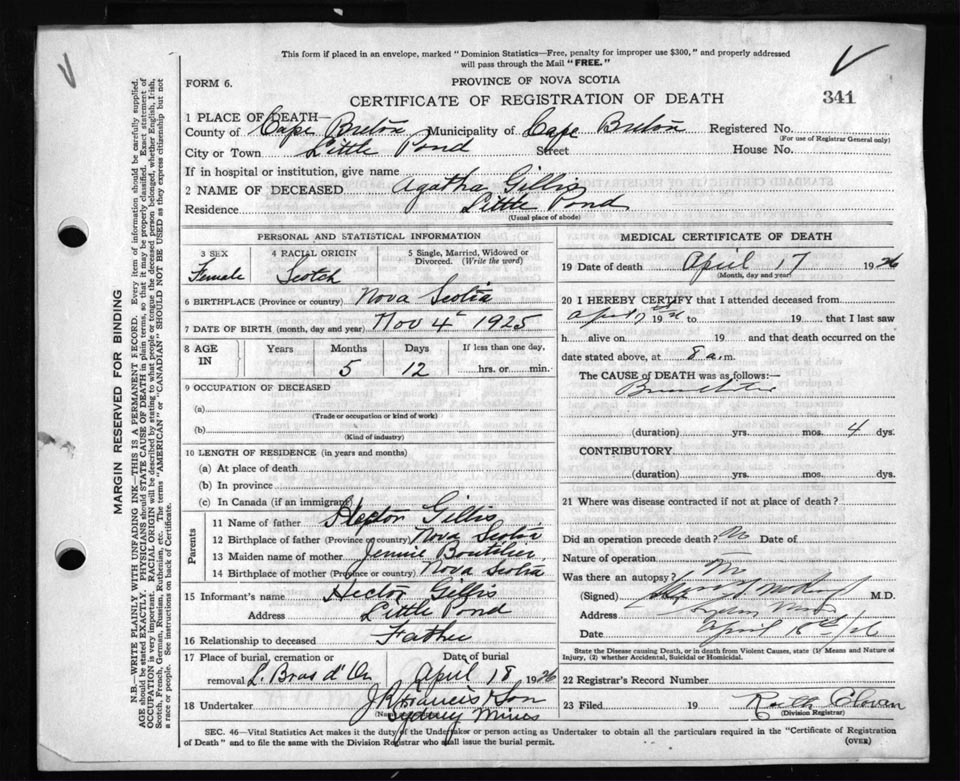 This form if placed in an envelope, marked "Dominion Statistics—Free, penalty for improper use $300," and properly addressed
will pass through the Mail "FREE."
FORM 6.
PROVINCE OF NOVA SCOTIA
CERTIFICATE OF REGISTRATION OF DEATH
341
1 PLACE OF DEATH—
County of Cape Breton Municipality of Cape Breton Registered No.
(For use of Registrar General only)
City or Town Little Pond Street House No.
If in hospital or institution, give name
2 NAME OF DECEASED Agatha Gillis
Residence Little Pond
(Usual place of abode)
PERSONAL AND STATISTICAL INFORMATION
3 SEX Female
4 RACIAL ORIGIN Scotch
5 Single, Married, Widowed or Divorced. (Write the word)
6 BIRTHPLACE (Province or country) Nova Scotia
7 DATE OF BIRTH (month, day and year) Nov 4 1925
8 AGE IN Years Months Days If less than one day,
5 12 hrs. or min.
9 OCCUPATION OF DECEASED
(a)
(Trade or occupation or kind of work)
(b)
(Kind of industry)
10 LENGTH OF RESIDENCE (in years and months)
(a) At place of death
(b) In province
(c) In Canada (if an immigrant)
Parents
11 Name of father Hector Gillis
12 Birthplace of father (Province or country) Nova Scotia
13 Maiden name of mother Jennie Boutilier
14 Birthplace of mother (Province or country) Nova Scotia
15 Informant's name Hector Gillis
Address Little Pond
16 Relationship to deceased Father
17 Place of burial, cremation or removal L. Bras d'Or Date of burial April 18 1926
18 Undertaker J R Francis & Son
Sydney Mines
MEDICAL CERTIFICATE OF DEATH
19 Date of death April 17 1926
(Month, day and year)
20 I HEREBY CERTIFY that I attended deceased from
April 19 to 19 that I last saw
h alive on 19 and that death occurred on the
date stated above, at 8 a.m.
The CAUSE OF DEATH was as follows:—
Bronchitis
(duration) yrs. mos. 4 dys.
CONTRIBUTORY
(duration) yrs. mos. dys.
21 Where was disease contracted if not at place of death?
Did an operation precede death? No Date of
Nature of operation
Was there an autopsy? No
(Signed) M.D.
Address Sydney Mines
Date April 18th/26
State the Disease causing Death, or in death from Violent Causes, state (1) Means and Nature of
Injury, (2) whether Accidental, Suicidal or Homicidal.
22 Registrar's Record Number
23 Filed 19 Ruth
(Division Registrar)
SEC. 46—Vital Statistics Act makes it the duty of the Undertaker or person acting as Undertaker to obtain all the particulars required in the "Certificate of Registration
of Death" and to file the same with the Division Registrar who shall issue the burial permit.
(OVER)
MARGIN RESERVED FOR BINDING
N.B.—WRITE PLAINLY WITH UNFADING INK—THIS IS A PERMANENT RECORD. Every item of information should be carefully supplied.
AGE should be stated EXACTLY. PHYSICIANS should STATE CAUSE OF DEATH in plain terms, so that it may be properly classified. Exact statement of
OCCUPATION is very important. RACIAL ORIGIN will be described by stating to what people or tongue the deceased person belonged, whether English, Irish,
Scotch, French, German, Russian, Ruthenian, etc. The terms "AMERICAN" or "CANADIAN" SHOULD NOT BE USED as they express citizenship but not
a race or people. See instructions on back of Certificate.